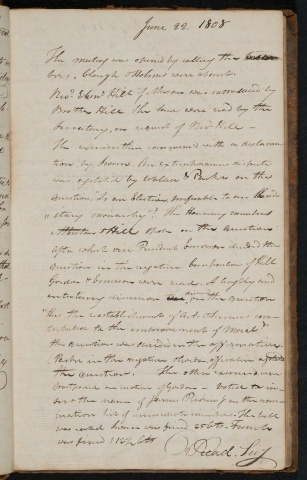 June 22. 1808
The meeting was opened by calling the
bers. Clough & Holmes were absent.
Rev. Eben Hill of Mason was introduced by
Brother Hill the laws were read by the
Secretary, on request of Rev. Hill —
The exercises then commenced with a declama-
tion by Brown. An extemporaneous dispute
was upheld by & Parker on the
question, Is an Elective preferable to an hered-
itary monarchy"? The Honorary members
& Hill spoke on the question
after which vice President Emerson decided the
question in the negative Composition of Hill
Gordon & Emerson were read. A lengthy and
entertaining discussion on the question
"Has the establishment of arts & sciences con-
tributed to the improvement of Morals"
the question was decided in the affirmative.
Parker in the negative
the question. The other exercises were
postponed on motion of Gordon — Voted to in-
sert the name of James in the nom-
ination list of immediate members. The bill
was called Brown was fined 25cts. French
was fined 12½ cts
Secy